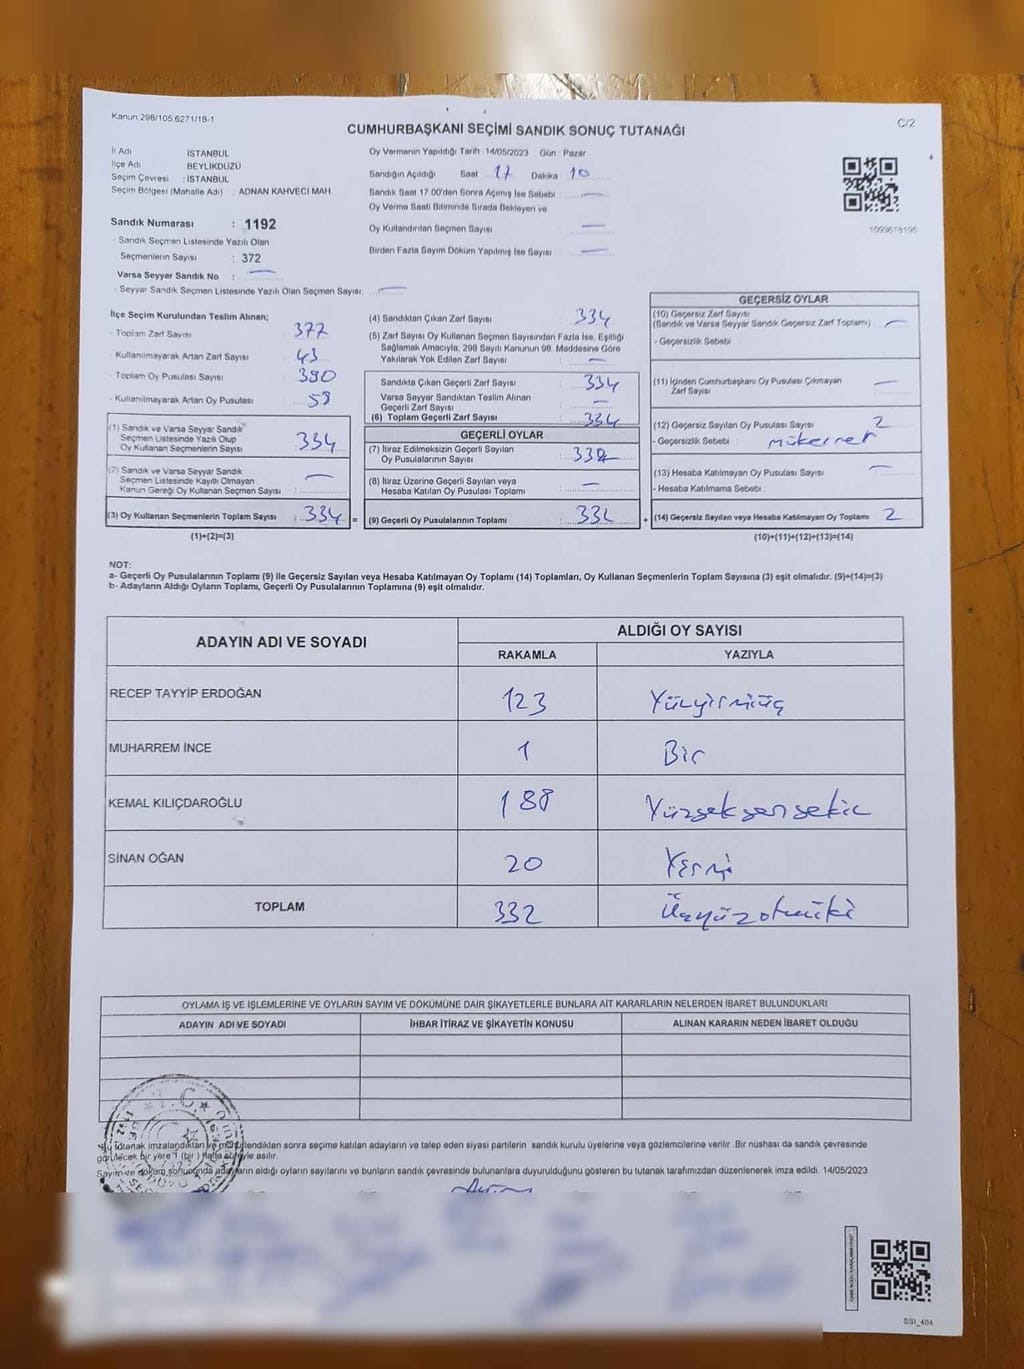 Kanun 298/105.6271/18-1
C/2
CUMHURBAŞKANI SEÇİMİ SANDIK SONUÇ TUTANAĞI
İl Adı İSTANBUL
İlçe Adı BEYLİKDÜZÜ
Seçim Çevresi : İSTANBUL
Seçim Bölgesi (Mahalle Adı) : ADNAN KAHVECİ MAH.
Sandık Numarası : 1192
- Sandık Seçmen Listesinde Yazılı Olan
Seçmenlerin Sayısı : 372
Varsa Seyyar Sandık No : —
- Seyyar Sandık Seçmen Listesinde Yazılı Olan Seçmen Sayısı: —
Oy Vermenin Yapıldığı Tarih :14/05/2023 Gün : Pazar
Sandığın Açıldığı Saat 17 Dakika : 10
Sandık Saat 17.00'den Sonra Açılmış İse Sebebi : —
Oy Verme Saati Bitiminde Sırada Bekleyen ve
Oy Kullandırılan Seçmen Sayısı —
Birden Fazla Sayım Döküm Yapılmış İse Sayısı : —
1099618196
İlçe Seçim Kurulundan Teslim Alınan;
- Toplam Zarf Sayısı : 377
- Kullanılmayarak Artan Zarf Sayısı : 43
- Toplam Oy Pusulası Sayısı : 390
- Kullanılmayarak Artan Oy Pusulası : 58
(1) Sandık ve Varsa Seyyar Sandık
Seçmen Listesinde Yazılı Olup
Oy Kullanan Seçmenlerin Sayısı : 334
(2) Sandık ve Varsa Seyyar Sandık
Seçmen Listesinde Kayıtlı Olmayan
Kanun Gereği Oy Kullanan Seçmen Sayısı : —
(3) Oy Kullanan Seçmenlerin Toplam Sayısı : 334 =
(1)+(2)=(3)
(4) Sandıktan Çıkan Zarf Sayısı : 334
(5) Zarf Sayısı Oy Kullanan Seçmen Sayısından Fazla İse, Eşitliği
Sağlamak Amacıyla; 298 Sayılı Kanunun 98. Maddesine Göre
Yakılarak Yok Edilen Zarf Sayısı : —
Sandıkta Çıkan Geçerli Zarf Sayısı : 334
Varsa Seyyar Sandıktan Teslim Alınan
Geçerli Zarf Sayısı : —
(6) Toplam Geçerli Zarf Sayısı : 334
GEÇERLİ OYLAR
(7) İtiraz Edilmeksizin Geçerli Sayılan
Oy Pusulalarının Sayısı : 332
(8) İtiraz Üzerine Geçerli Sayılan veya
Hesaba Katılan Oy Pusulası Toplamı : —
(9) Geçerli Oy Pusulalarının Toplamı : 332 +
GEÇERSİZ OYLAR
(10) Geçersiz Zarf Sayısı
(Sandık ve Varsa Seyyar Sandık Geçersiz Zarf Toplamı) : —
- Geçersizlik Sebebi
(11) İçinden Cumhurbaşkanı Oy Pusulası Çıkmayan
Zarf Sayısı : —
(12) Geçersiz Sayılan Oy Pusulası Sayısı : 2
- Geçersizlik Sebebi : mükerrer
(13) Hesaba Katılmayan Oy Pusulası Sayısı : —
- Hesaba Katılmama Sebebi :
(14) Geçersiz Sayılan veya Hesaba Katılmayan Oy Toplamı : 2
(10)+(11)+(12)+(13)=(14)
NOT:
a- Geçerli Oy Pusulalarının Toplamı (9) ile Geçersiz Sayılan veya Hesaba Katılmayan Oy Toplamı (14) Toplamları, Oy Kullanan Seçmenlerin Toplam Sayısına (3) eşit olmalıdır. (9)+(14)=(3)
b- Adayların Aldığı Oyların Toplamı, Geçerli Oy Pusulalarının Toplamına (9) eşit olmalıdır.
ADAYIN ADI VE SOYADI
ALDIĞI OY SAYISI
RAKAMLA YAZIYLA
RECEP TAYYİP ERDOĞAN 123 Yüzyirmiüç
MUHARREM İNCE 1 Bir
KEMAL KILIÇDAROĞLU 188 Yüzseksensekiz
SİNAN OĞAN 20 Yirmi
TOPLAM 332 Üçyüzotuziki
OYLAMA İŞ VE İŞLEMLERİNE VE OYLARIN SAYIM VE DÖKÜMÜNE DAİR ŞİKAYETLERLE BUNLARA AİT KARARLARIN NELERDEN İBARET BULUNDUKLARI
ADAYIN ADI VE SOYADI İHBAR İTİRAZ VE ŞİKAYETİN KONUSU ALINAN KARARIN NEDEN İBARET OLDUĞU
T.C.
*Bu tutanak imzalandıktan ve mühürlendikten sonra seçime katılan adayların ve talep eden siyasi partilerin sandık kurulu üyelerine veya gözlemcilerine verilir. Bir nüshası da sandık çevresinde
görülecek bir yere 1 (bir) hafta süreyle asılır.
Sayım ve döküm sonucunda adayların aldığı oyların sayılarını ve bunların sandık çevresinde bulunanlara duyurulduğunu gösteren bu tutanak tarafımızdan düzenlenerek imza edildi. 14/05/2023
SSI_404